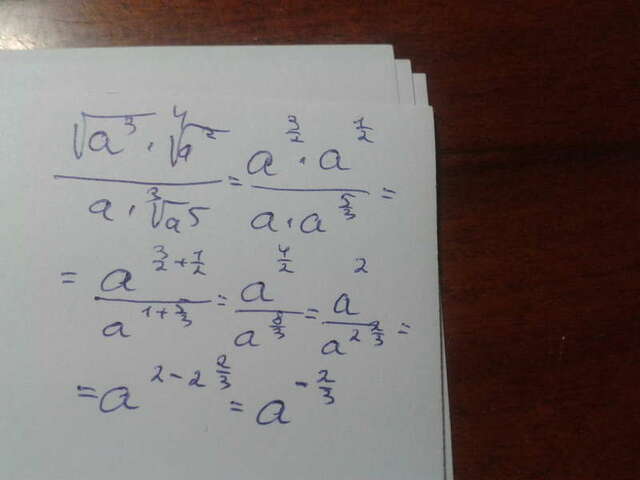 √a³ · ⁴√a² / a · ³√a⁵ = a^(3/2) · a^(1/2) / a · a^(5/3) =
= a^(3/2 + 1/2) / a^(1 + 5/3) = a^(4/2) / a^(8/3) = a² / a^(2 2/3) =
= a^(2 - 2 2/3) = a^(-2/3)